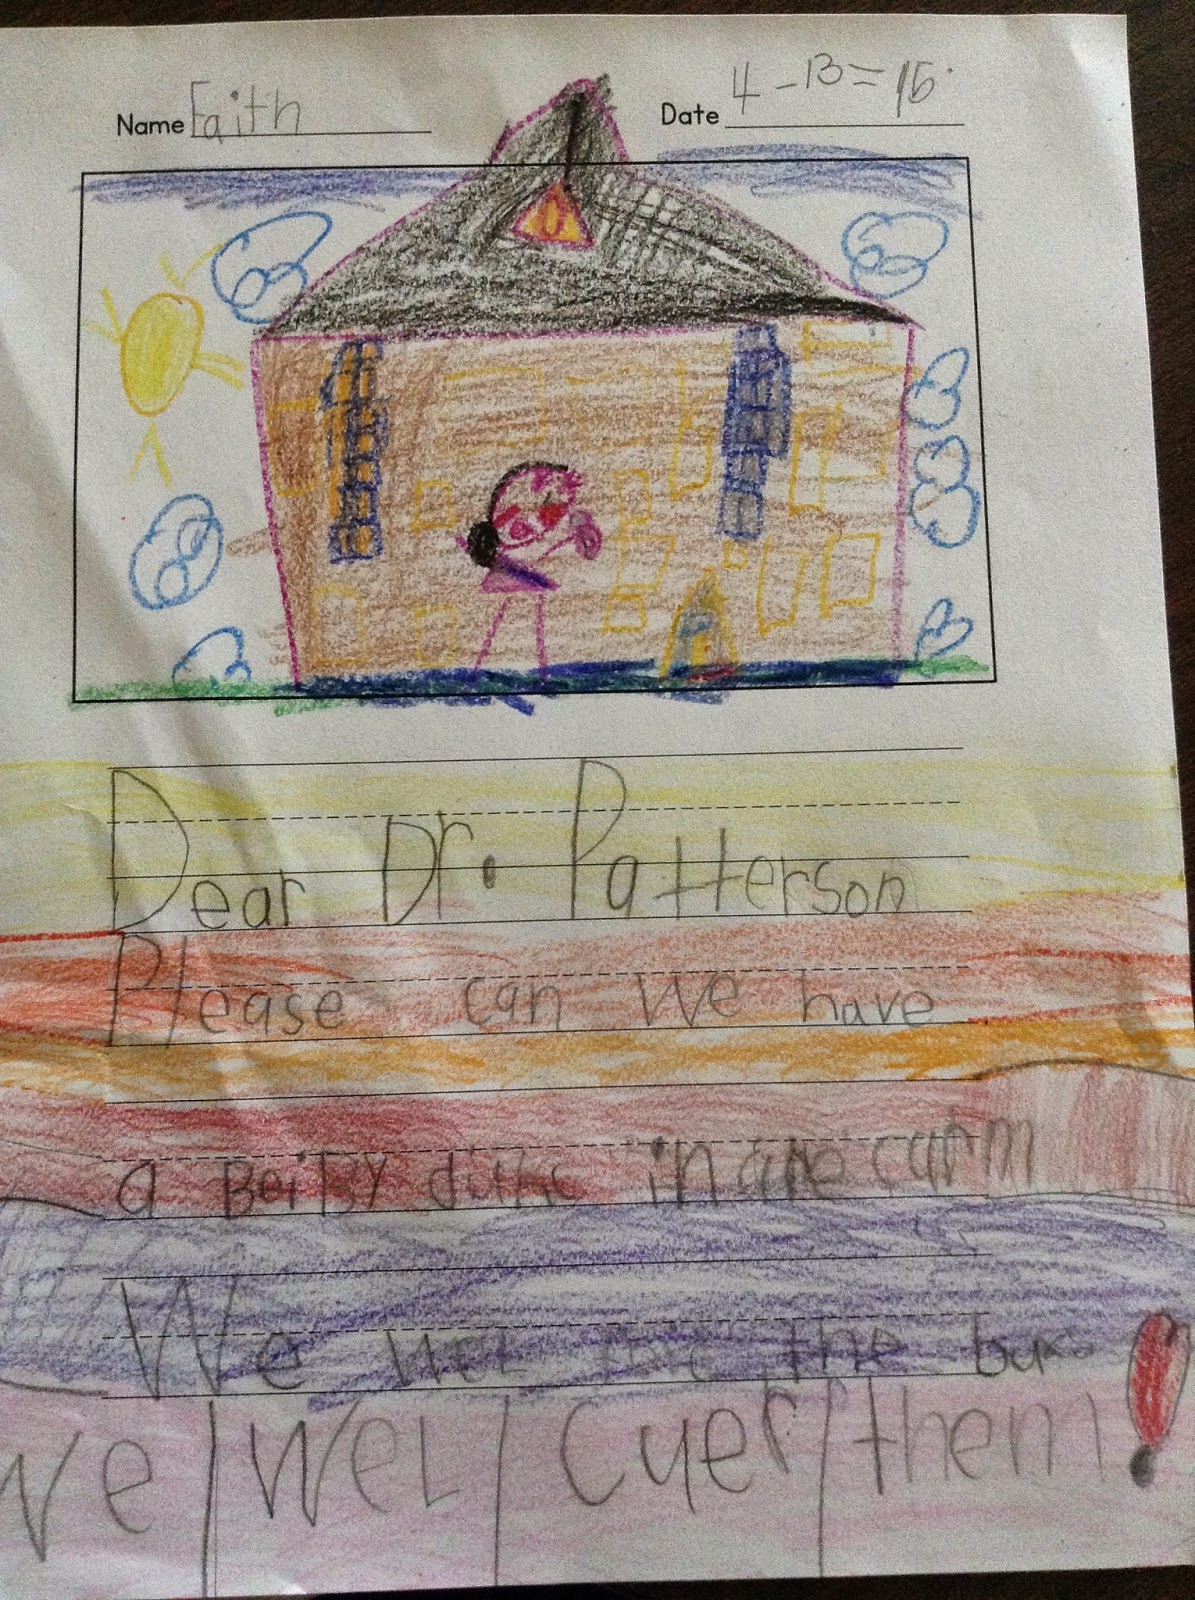 Name Faith
Date 4-13=15
Dear Dr. Patterson
Please can we have
a BeiBy duks in are carm
We wel the the bux
We wel cyer them!